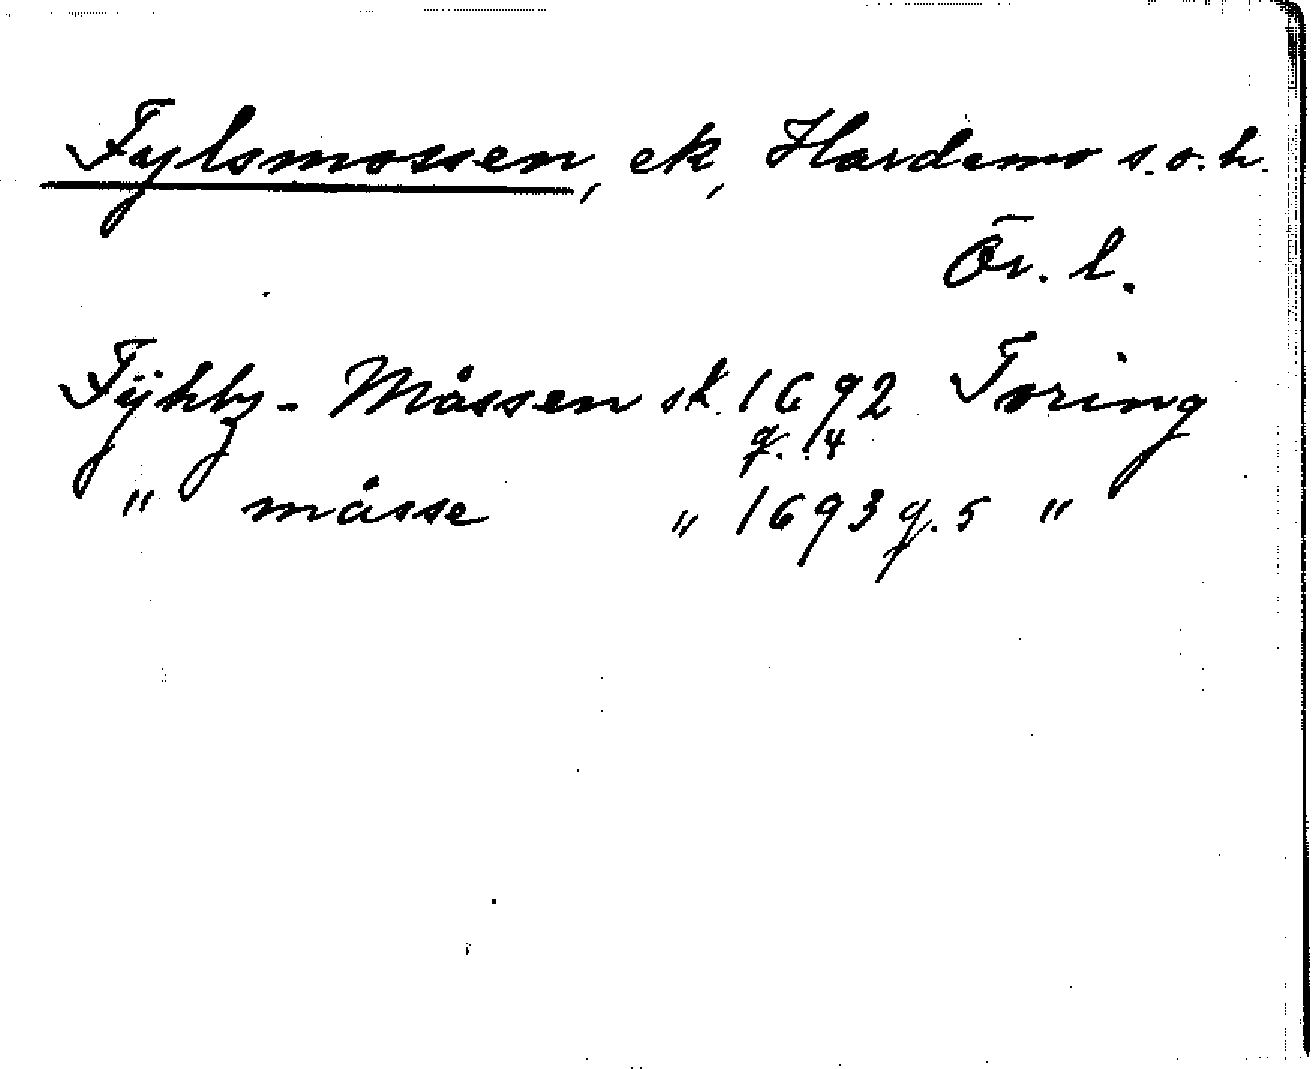 Fylsmossen, ek, Hardemo s.o.h.
Ör. l.
Måssen sk. 1692 Toring
g. 14
" måsse " 1693 g. 5 "